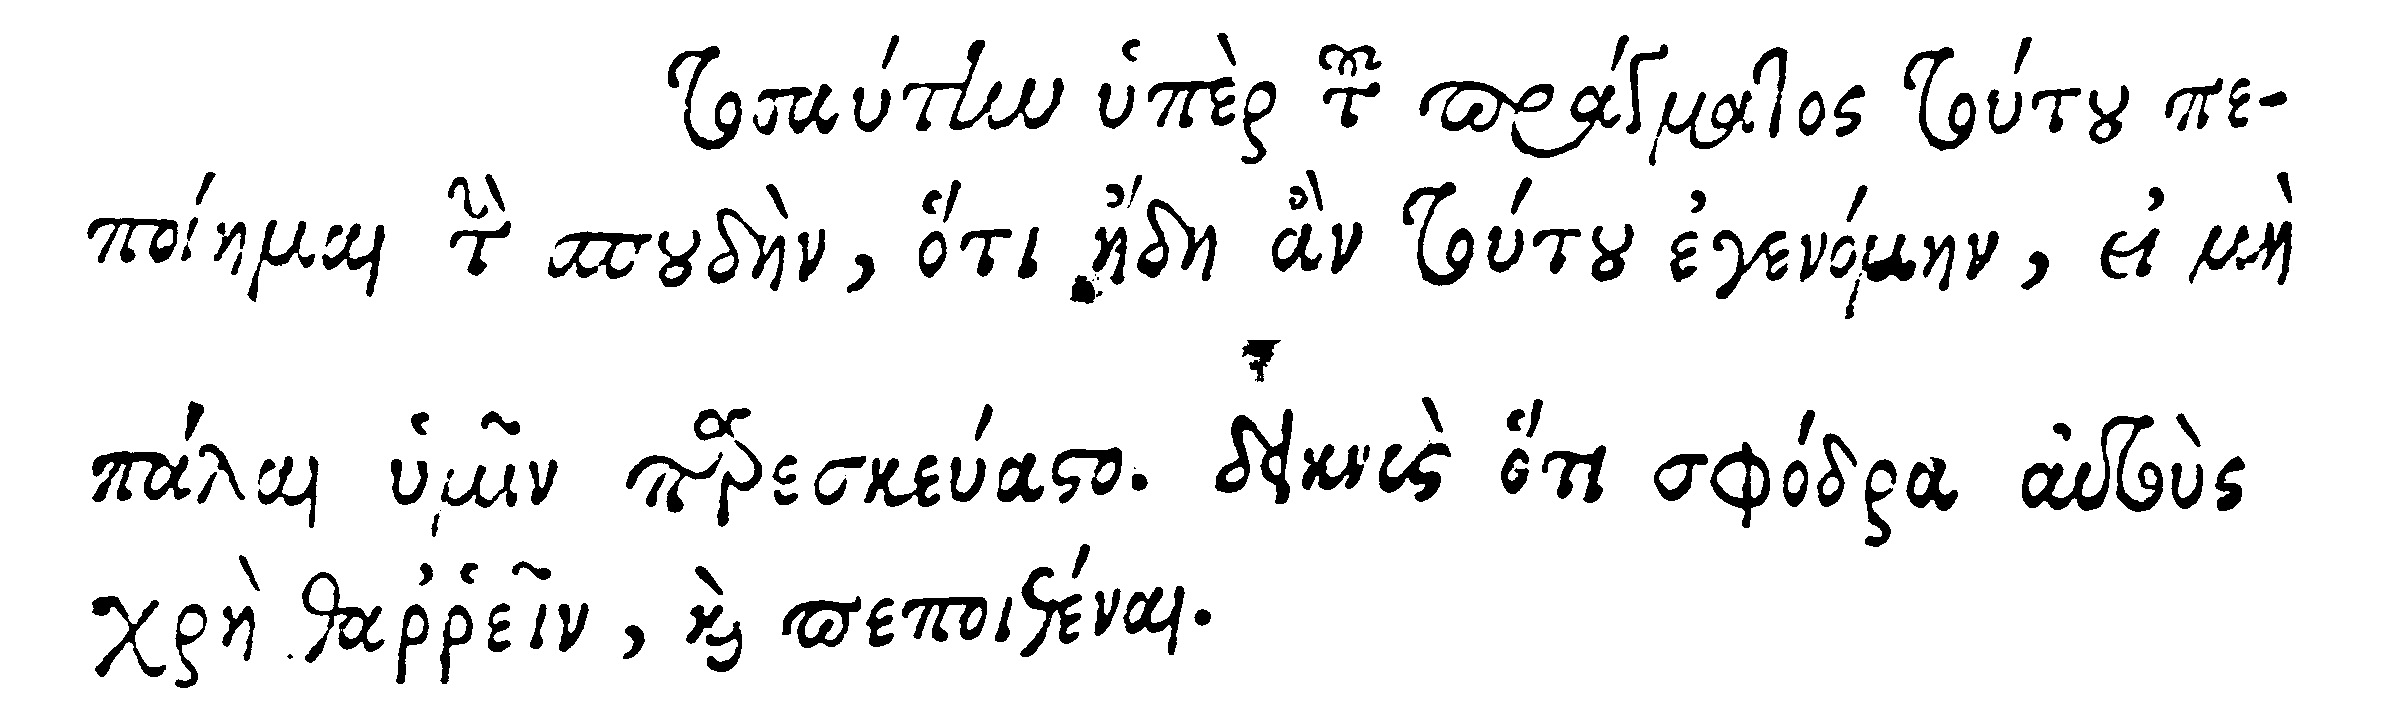 τοσαύτην ὑπὲρ τοῦ πράγματος τούτου πε-
ποίημαι τὴν σπουδὴν, ὅτι ἤδη ἂν τούτου ἐγενόμην, εἰ μὴ
πάλαι ὑμῖν παρεσκεύαστο. ὅτι σφόδρα αὐτοὺς
χρὴ θαῤῥεῖν, καὶ πεποιθέναι.